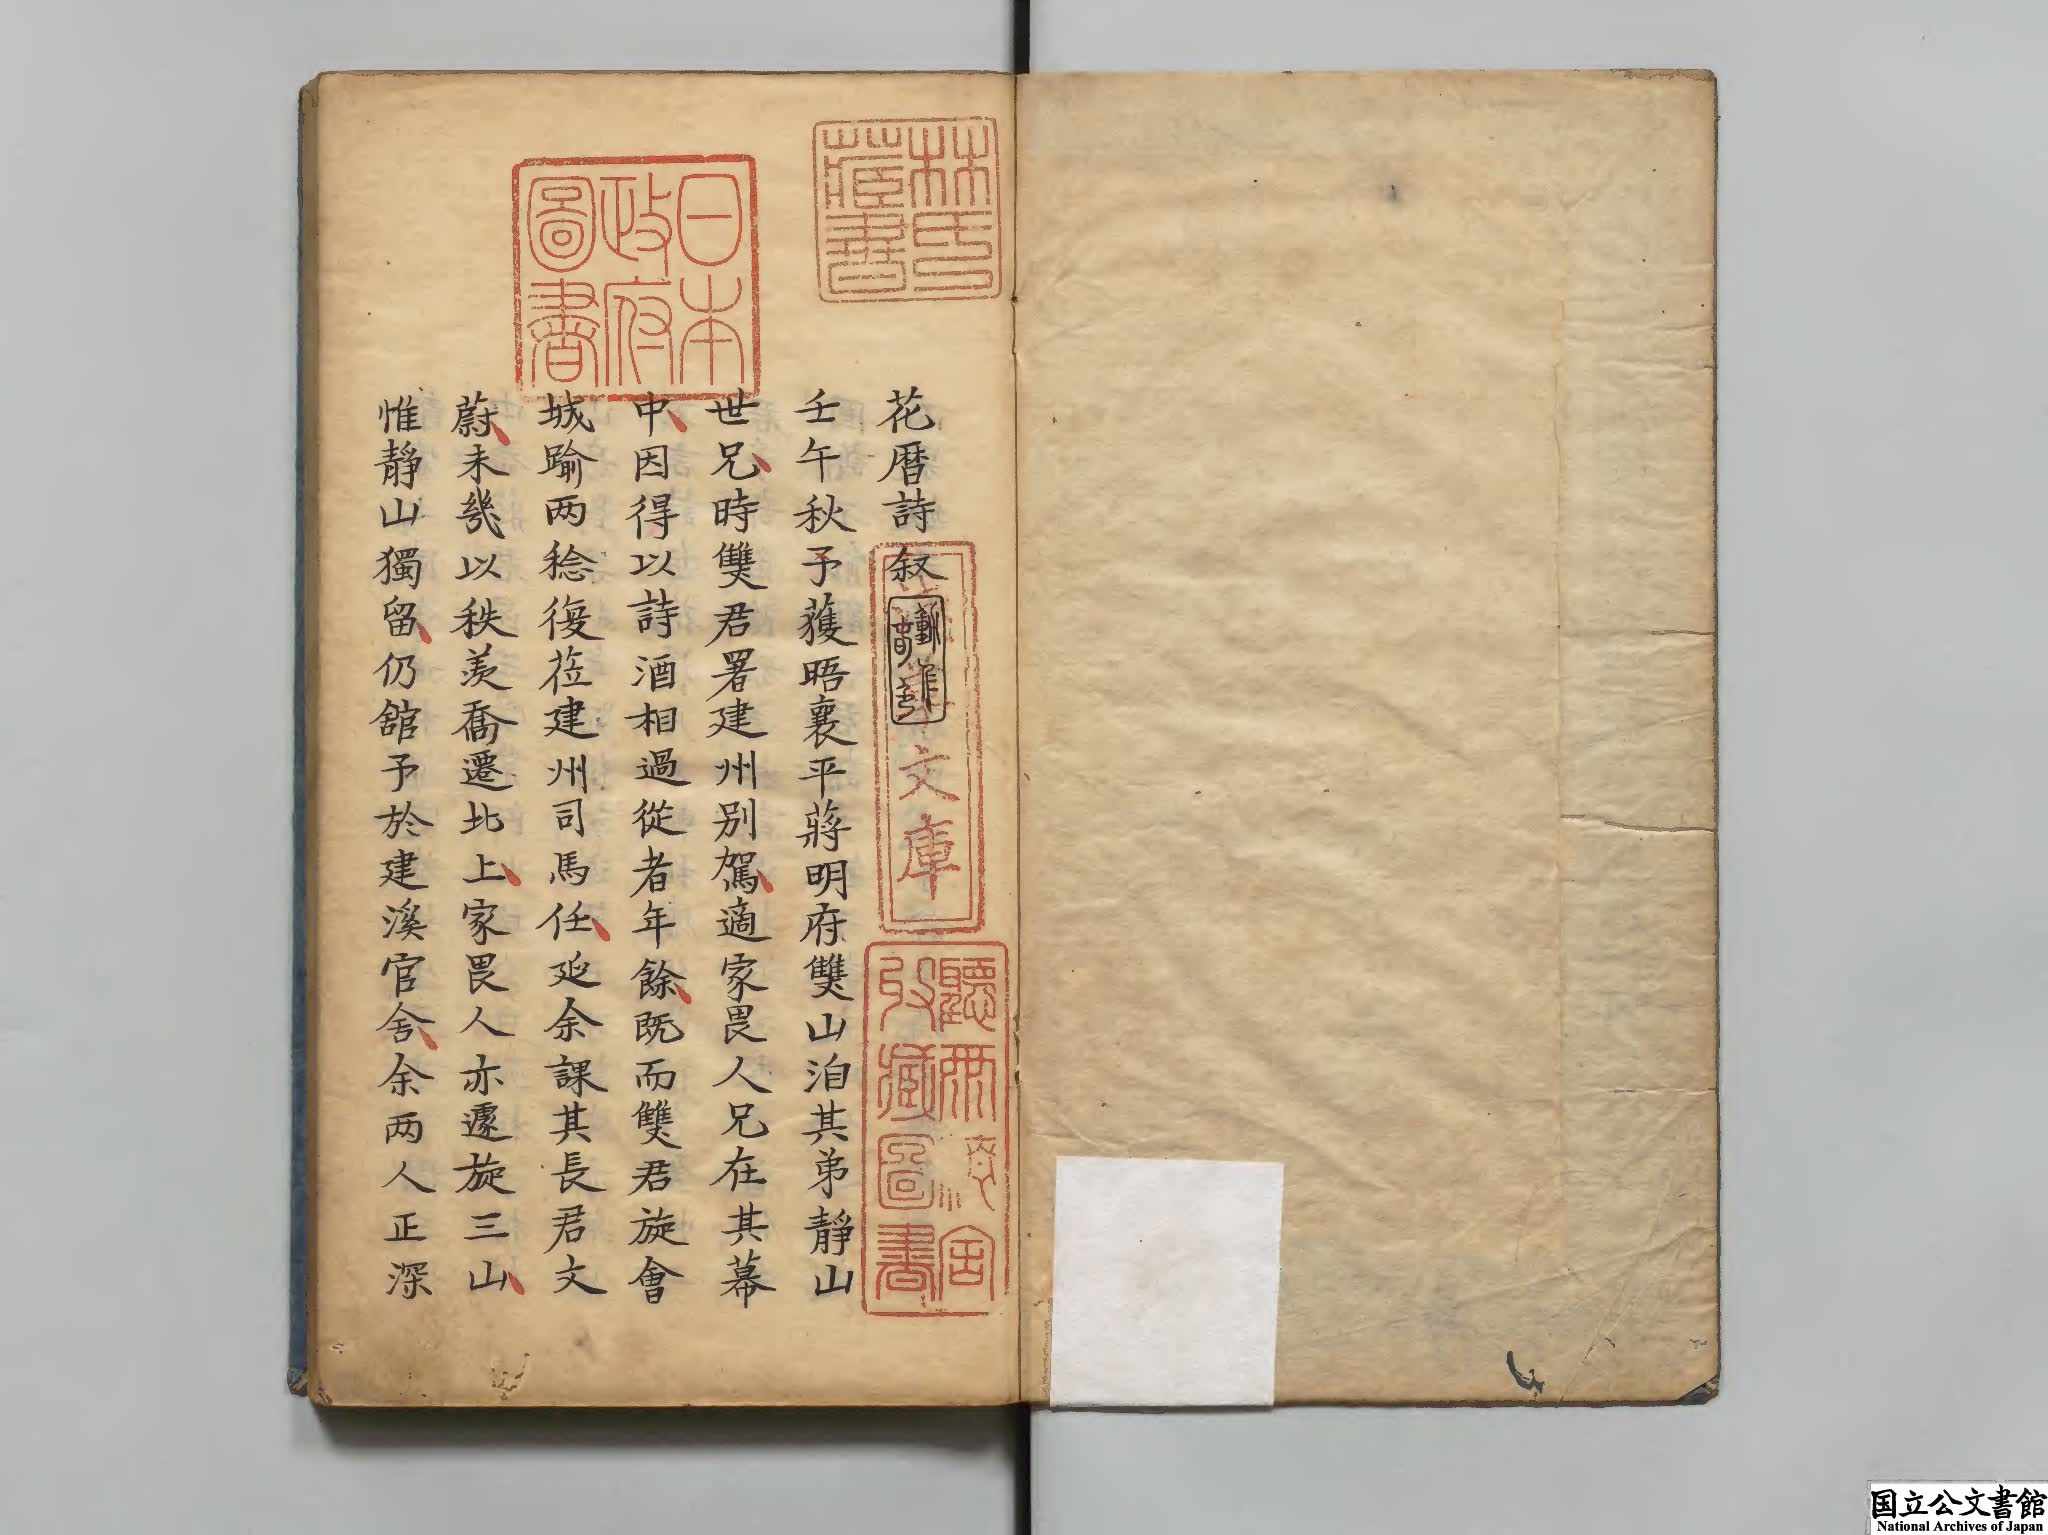 花曆詩叙
壬午秋予獲晤襄平蔣明府雙山洎其弟靜山
世兄時雙君署建州別駕適家畏人兄在其幕
中因得以詩酒相過從者年餘既而雙君旋會
城踰两稔復莅建州司馬任延余課其長君文
蔚未幾以秩羨喬遷北上家畏人亦遽旋三山
惟靜山獨留仍舘予於建溪官舍余两人正深
林氏藏書
日本政府圖書
文庫
收藏圖書
国立公文書館
National Archives of Japan